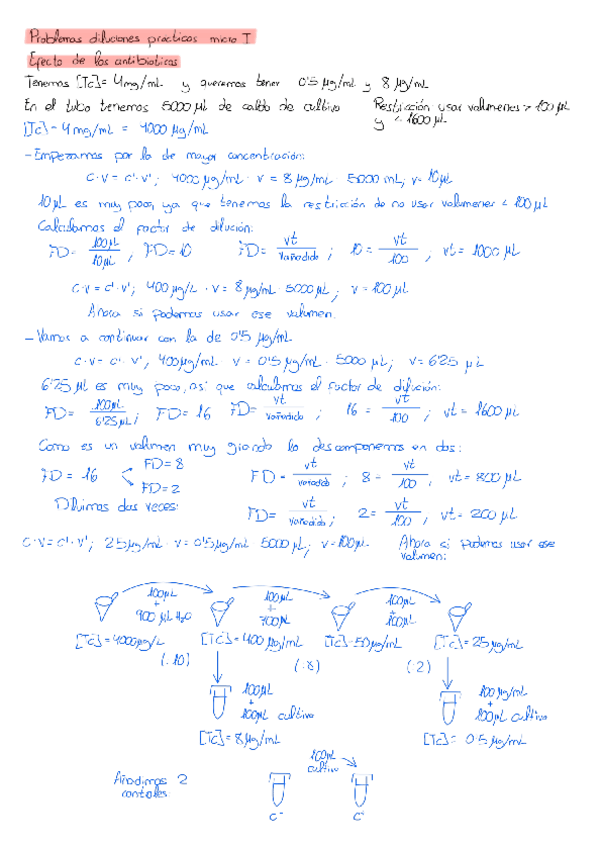 Problemas diluciones practicas micro I
Efecto de los antibioticos
Tenemos [Tc]= 4mg/mL y queremos tener 0'5 µg/mL y 8 µg/mL
En el tubo tenemos 5000 µL de caldo de cultivo Restricción usar volumenes > 100 µL
y < 1600 µL
[Tc] = 4 mg/mL = 4000 µg/mL
- Empezamos por la de mayor concentración:
C·V = C'·V'; 4000 µg/mL · V = 8 µg/mL · 5000 mL; V= 10 µL
10 µL es muy poco, ya que tenemos la restricción de no usar volumenes < 100 µL
Calculamos el factor de dilución:
FD= 100µL / 10µL , FD= 10 FD= Vt / Vañadido ; 10 = Vt / 100 ; Vt= 1000 µL
C·V = C'·V'; 400 µg/L · V = 8 µg/mL 5000 µL; V = 100 µL
Ahora si podemos usar ese volumen.
- Vamos a continuar con la de 0'5 µg/mL
C·V = C'·V', 400µg/mL V = 0'5 µg/mL · 5000 µL; V= 6'25 µL
6'25 µL es muy poco, asi que calculamos el factor de dilución:
FD= 100µL / 6'25µL ; FD= 16 FD= Vt / Vañadido ; 16 = Vt / 100 ; Vt= 1600 µL
Como es un volumen muy grande lo descomponemos en dos:
FD = 16 FD= 8 FD = Vt / Vañadido ; 8 = Vt / 100 , Vt= 800 µL
FD= 2
Diluimos dos veces: FD= Vt / Vañadido ; 2= Vt / 100 , Vt= 200 µL
C·V= C'·V'; 25µg/mL · V = 0'5µg/mL 5000 µL; V=100µL. Ahora si podemos usar ese
volumen:
100µL + 900 µL H2O
100µL + 700µL
100µL + 100µL
[Tc]= 4000µg/L [Tc]= 400 µg/mL [Tc]= 50µg/mL [Tc]= 25 µg/mL
(:10) (:8) (:2)
100µL + 100µL cultivo 100 µg/mL + 100µL cultivo
[Tc]= 8µg/mL [Tc]= 0'5 µg/mL
Añadimos 2 controles:
100µL cultivo
C- C+